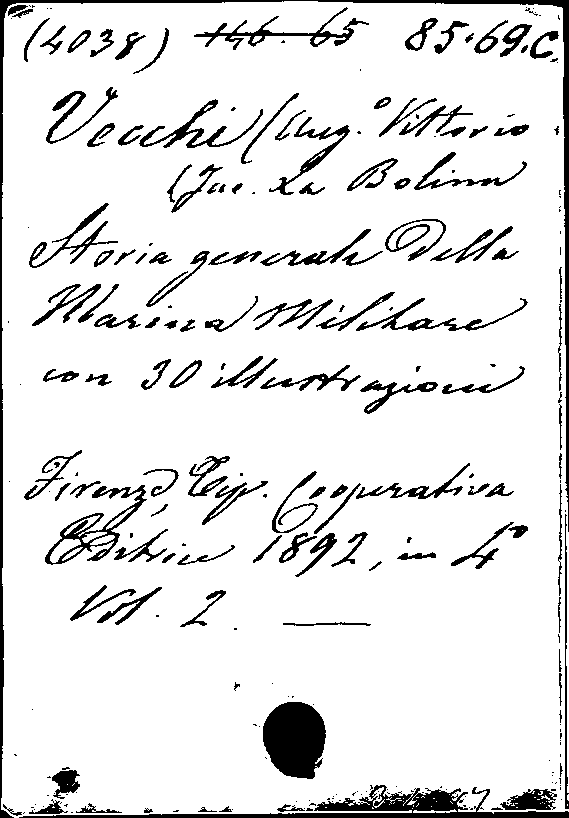 (4038) 146. 65 85.69.C.
Vecchi (Aug.º Vittorio
(Jac. La Bolina
Storia generale Della
Marina Militare
con 30 illustrazioni
Firenze, Tip. Cooperativa
Editrice 1892, in 4º
Vol. 2.